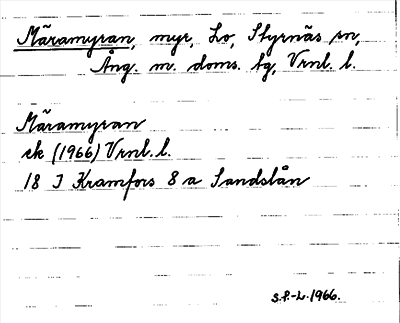 Märamyran, myr, Lo, Styrnäs sn,
Ång. m. doms. tg, Vrnl. l.
Märamyran
ek (1966) Vrnl. l.
18 J Kramfors 8 a Sandslån
S.P.-L. 1966.